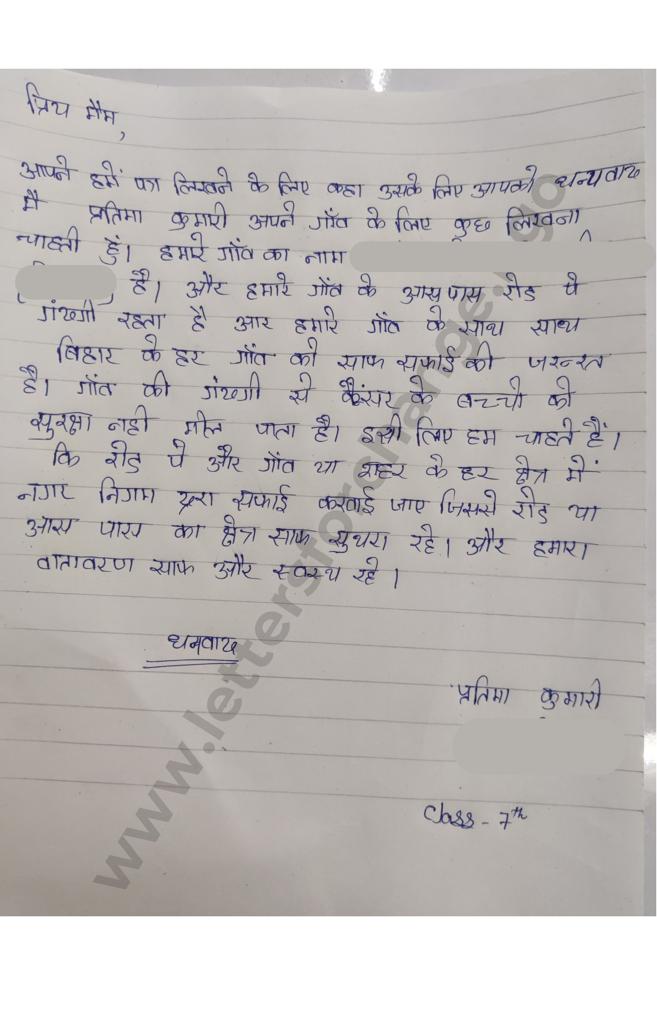 प्रिय मैम,
आपने हमें पत्र लिखने के लिए कहा उसके लिए आपको धन्यवाद
मै प्रतिमा कुमारी अपने गाँव के लिए कुछ लिखना
चाहती हुं। हमारे गाँव का नाम
है। और हमारे गाँव के आस पास रोड पे
गंदगी रहता है और हमारे गाँव के साथ साथ
बिहार के हर गाँव को साफ सफाई की जरूरत
है। गाँव की गंदगी से कैंसर के बच्चो को
सुरक्षा नही मील पाता है। इसी लिए हम चाहते हैं।
कि रोड पे और गाँव या शहर के हर क्षेत्र में
नगर निगम द्वारा सफाई करवाई जाए जिससे रोड या
आस पास का क्षेत्र साफ सुथरा रहे। और हमारा
वातावरण साफ और स्वस्थ रहे।
धनवाद
प्रतिमा कुमारी
Class - 7th
www.lettersforchange.ngo